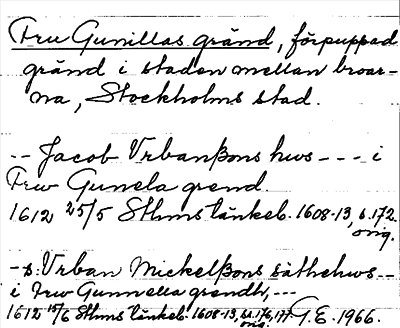 Fru Gunillas gränd, förpuppad
gränd i staden mellan broar-
na, Stockholms stad.
-- Jacob Vrbanßons hws --- i
Frw Gunela grend.
1612 25/5 Sthms tänkeb. 1608-13, s. 172.
orig.
-s: Vrban Mickelßons sätthehws--
i Frw Gunnella grendh, ---
1612 15/6 Sthms tänkeb. 1608-13, s. 176, 177
orig. G.E. 1966.